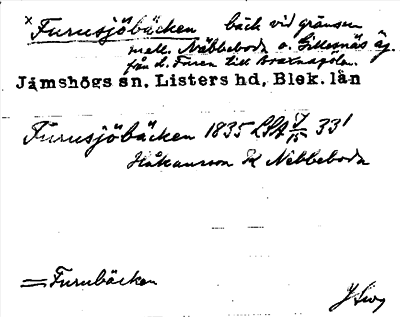 × Furusjöbäcken bäck vid gränsen
mell. Näbbeboda o. Lillesnäs äg.
från d. Furen till
Jämshögs sn. Listers hd, Blek. län
Furusjöbäcken 1835 LSA 33¹
Håkansson K Nebbeboda
= Furubäcken